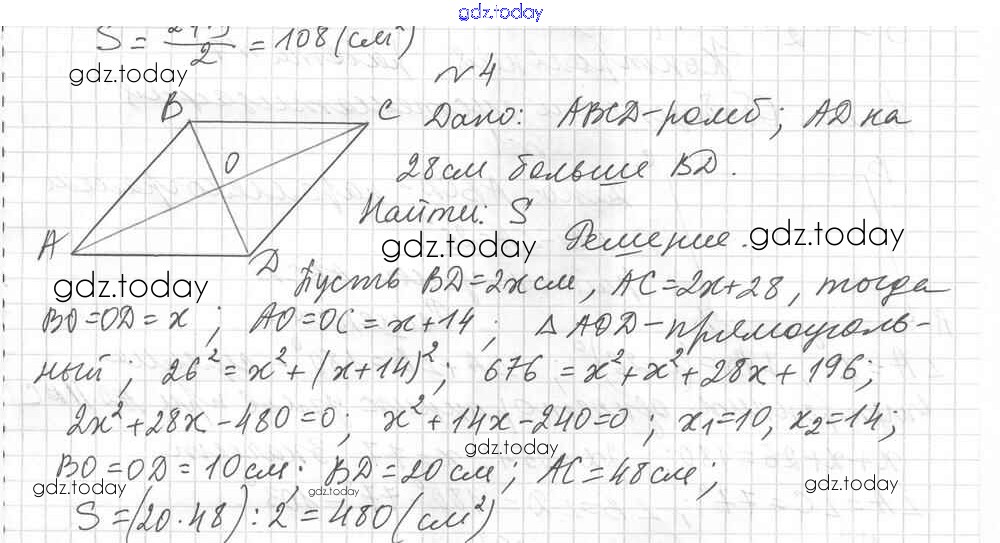 gdz.today
S = 24·9/2 = 108 (см²)
gdz.today
№ 4
B
C
O
A
D
Дано: ABCD-ромб; AD на
28 см больше BD.
Найти: S
gdz.today
Решение.
gdz.today
gdz.today
Пусть BD=2x см, AC=2x+28, тогда
BO=OD=x; AO=OC=x+14; △AOD-прямоуголь-
ный; 26²=x²+(x+14)²; 676=x²+x²+28x+196;
2x²+28x-480=0; x²+14x-240=0; x₁=10, x₂=14;
gdz.today
BO=OD=10см; BD=20см; AC=48см;
gdz.today
gdz.today
gdz.today
S=(20·48):2=480(см²)